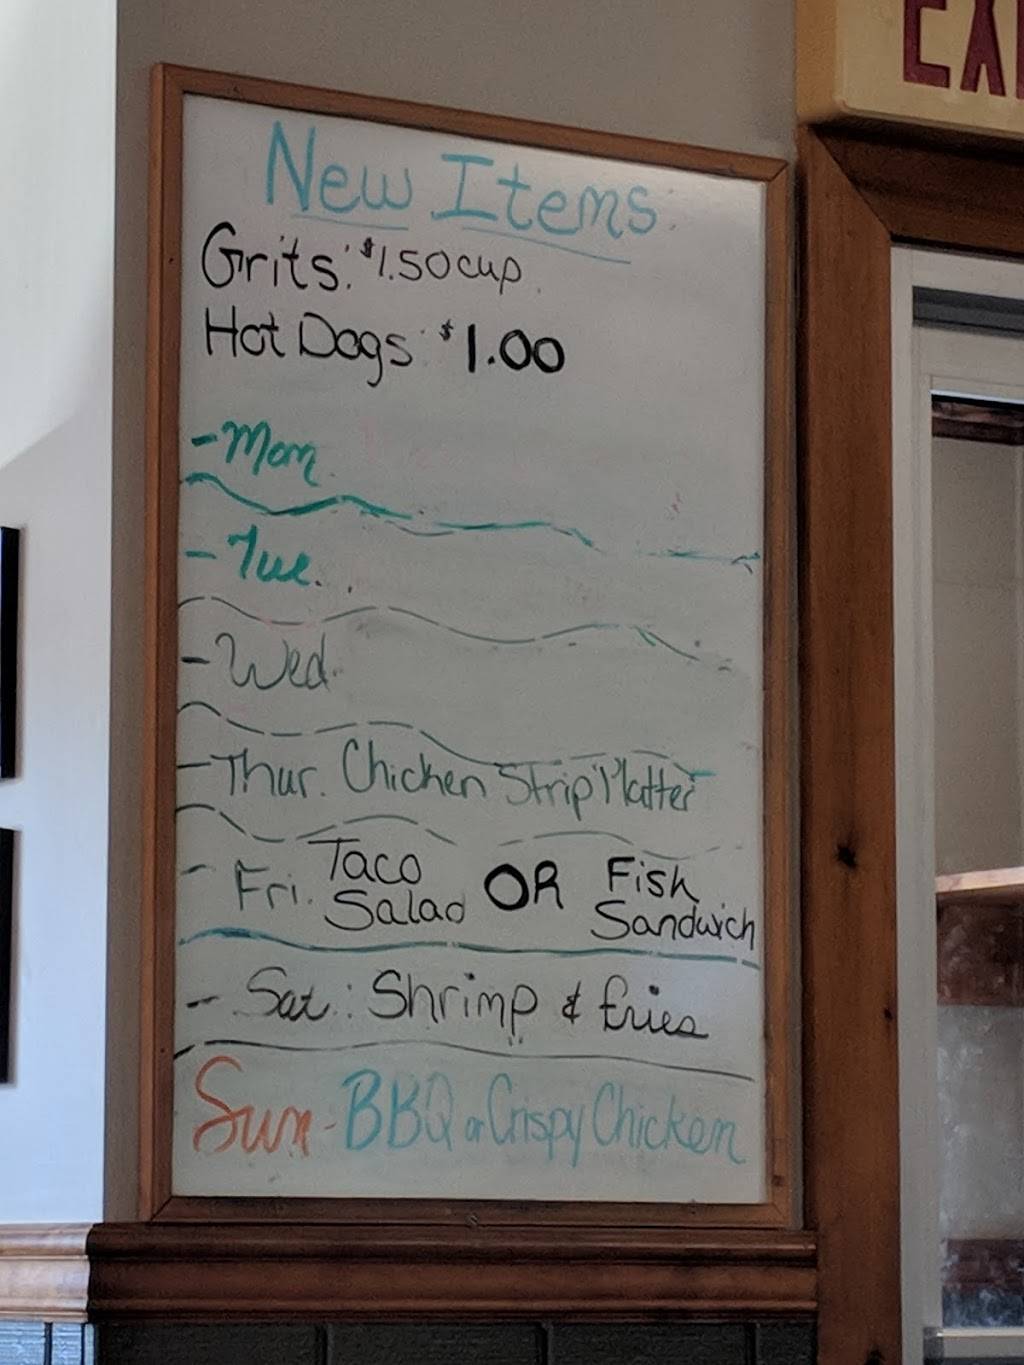 EXI
New Items:
Grits: $1.50 cup
Hot Dogs: $1.00
- Mon.
- Tue.
- Wed.
- Thur. Chicken Strip Platter
- Fri. Taco Salad OR Fish Sandwich
- Sat.: Shrimp & fries
Sun - BBQ or Crispy Chicken